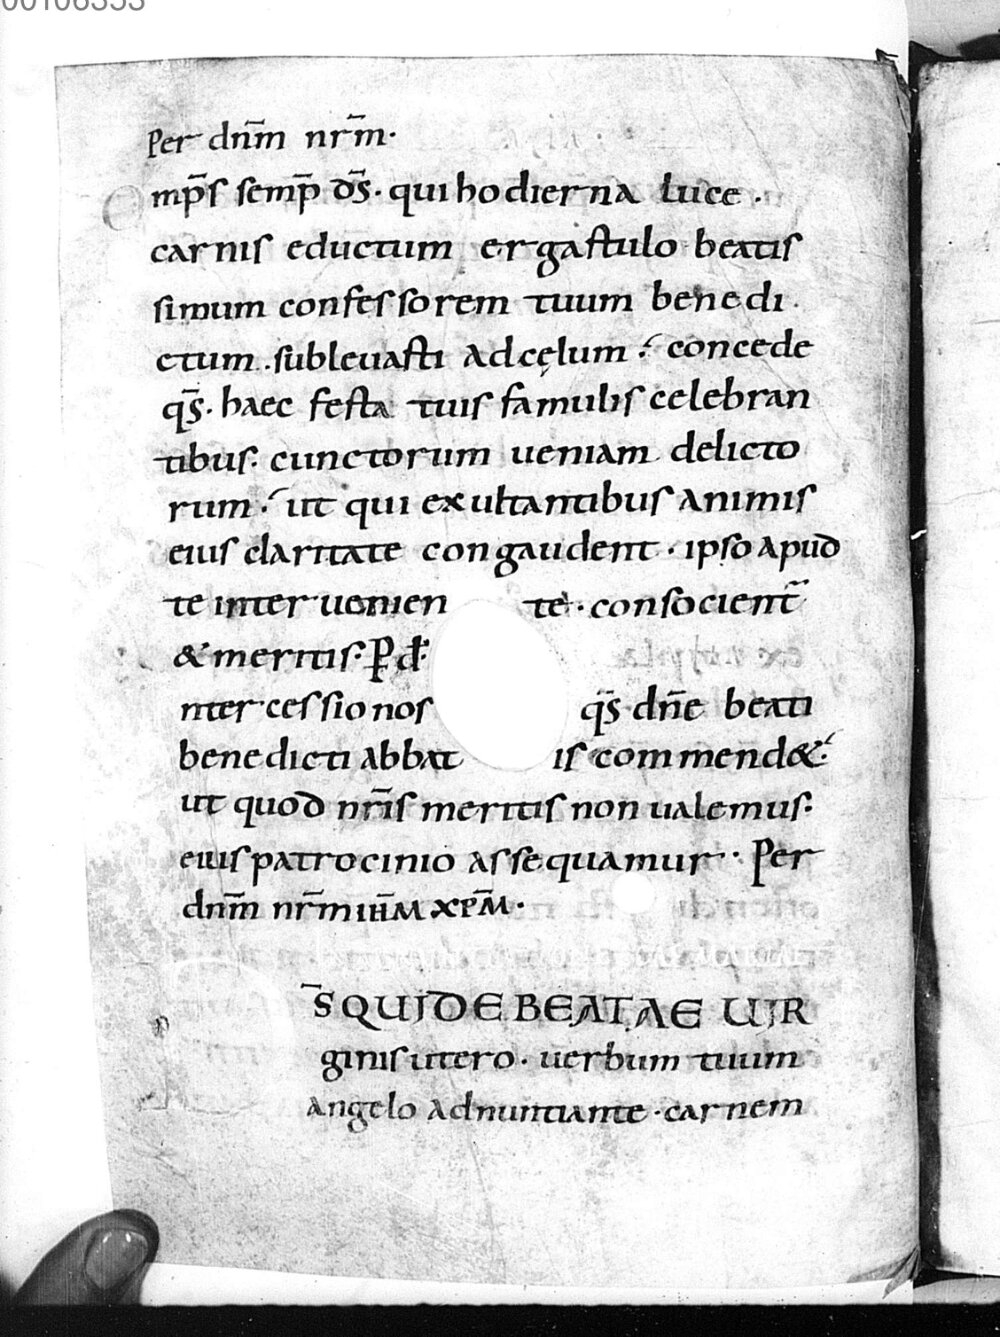 00106353
Per dnm̄ nrm̄·
O mp̄s semp̄ ds̄· qui hodierna luce ·
carnis eductum ergastulo beatis
simum confessorem tuum benedi
ctum · subleuasti ad cęlum · concede
qs̄· haec festa tuis famulis celebran
tibus· cunctorum ueniam delicto
rum · ut qui exultantibus animis
eius claritate congaudent · ipso apud
te interuenien te · consocient̄
& meritis· P̄ d̄·
ntercessio nos qs̄ dn̄e beati
benedicti abbat is commend&·
ut quod nr̄is meritis non ualemus·
eius patrocinio assequamur · Per
dnm̄ nrm̄ ihm̄ xpm̄·
S̄ QUI DE BEATAE UIR
ginis utero · uerbum tuum
angelo adnuntiante · carnem